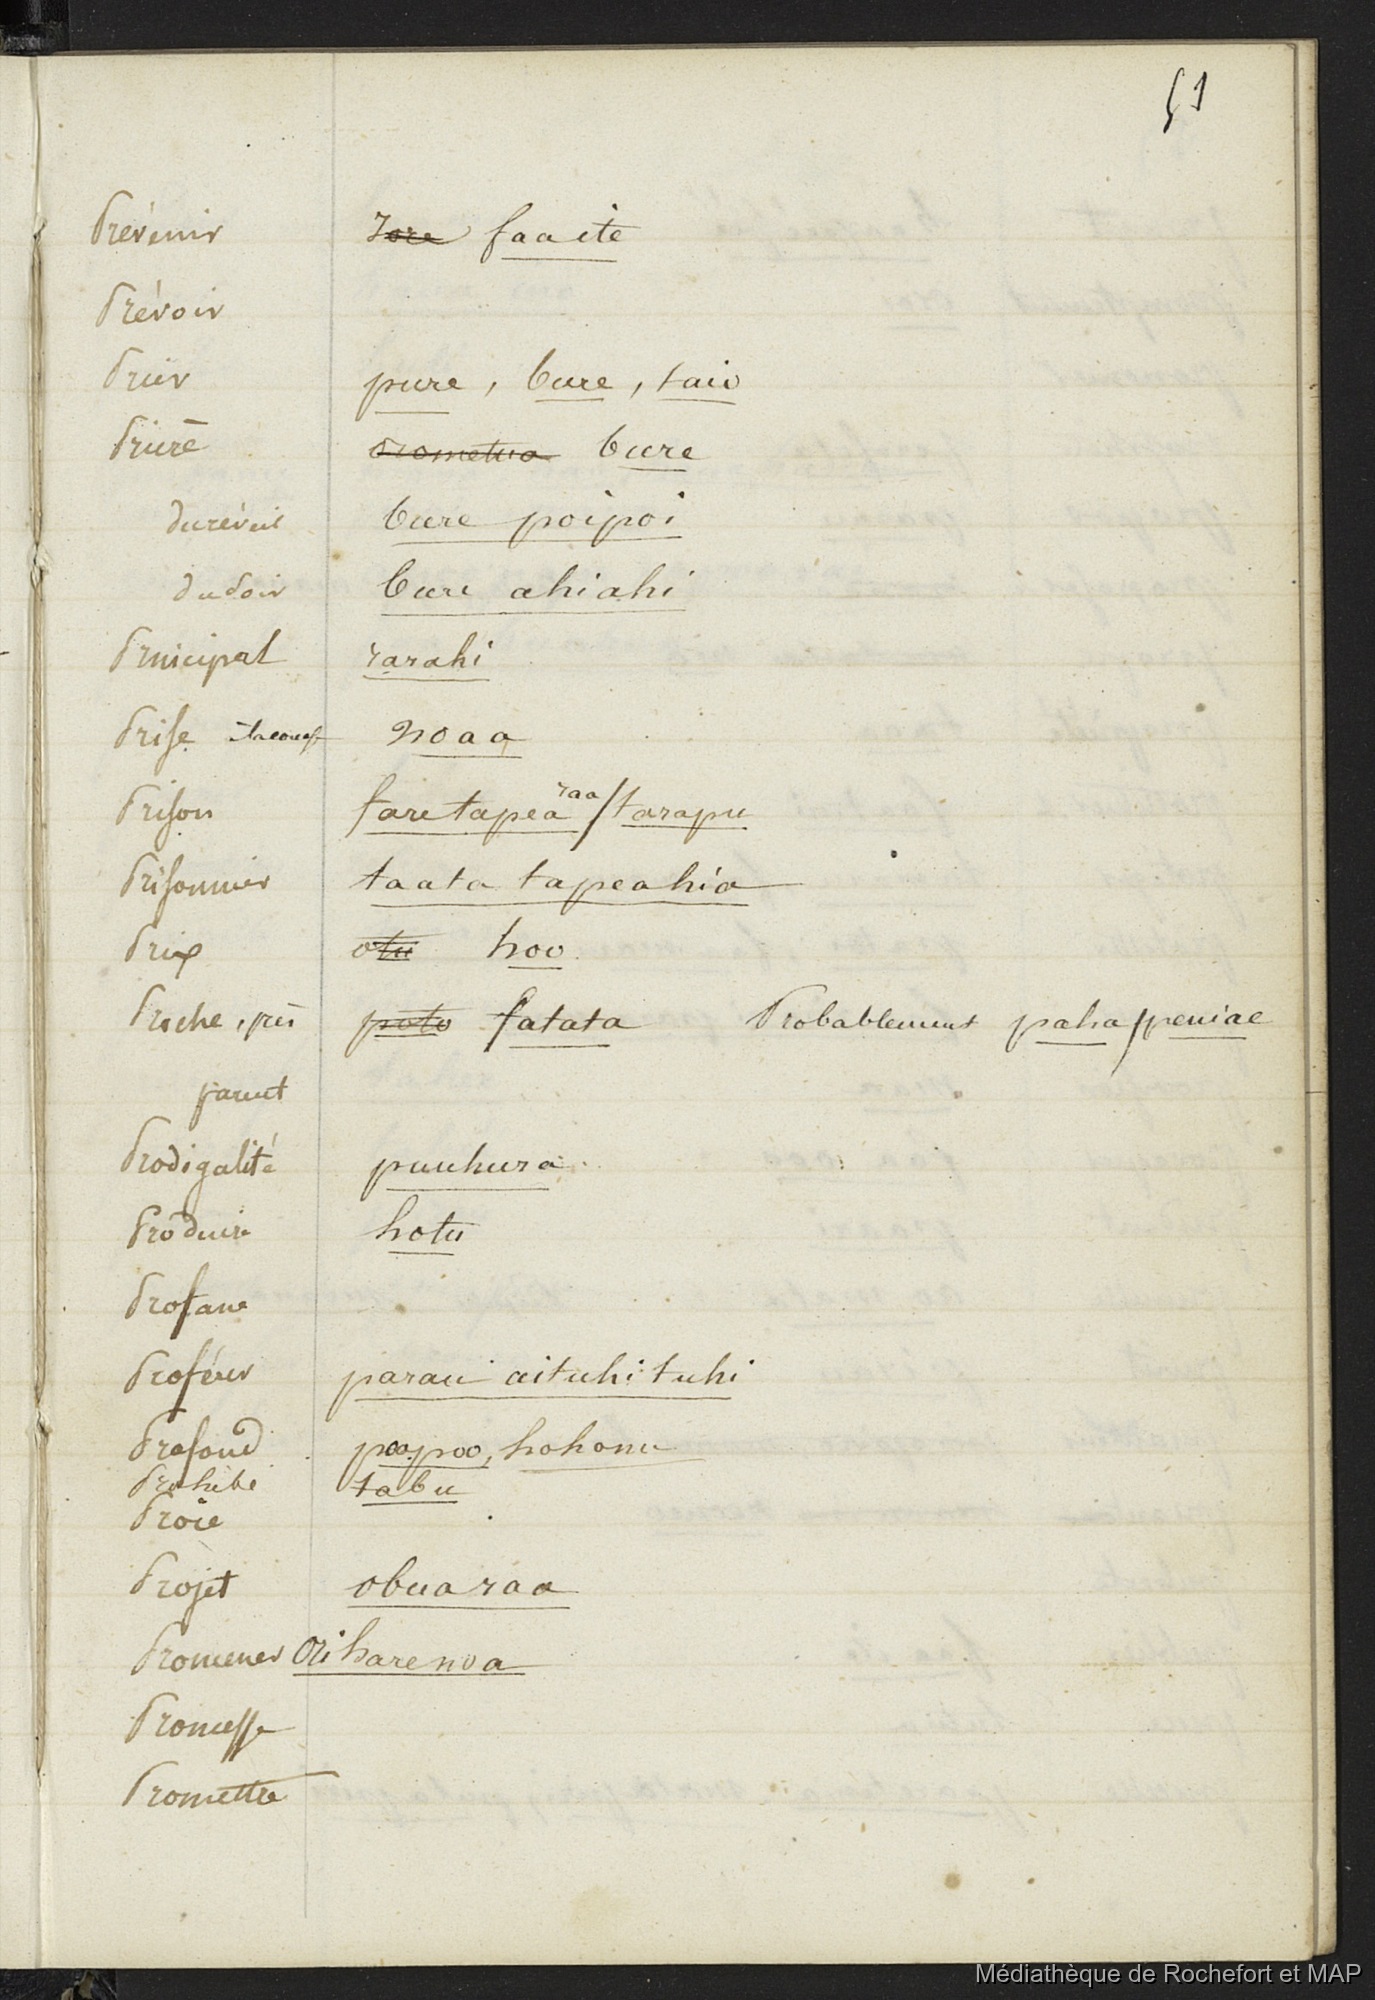 51
Prévenir rore faaite
Prévoir
Prier pure, bure, taio
Priere orometua bure
du réveil bure poipoi
du Soir bure ahiahi
Principal rarahi
Prise noaa
Prison fare tapea raa / tarapu
Prisonnier taata tapeahia
Prix otu hoo
Proche, près poto fatata Probablement paha / peniae
parent
Prodigalité puuhura
Produire hotu
Profane
Proférer parau aituhituhi
Profond poopoo, hohonu
Prohibé tabu
Proie
Projet obua raa
Promener Ori harenoa
Promesse
Promettre
Médiathèque de Rochefort et MAP